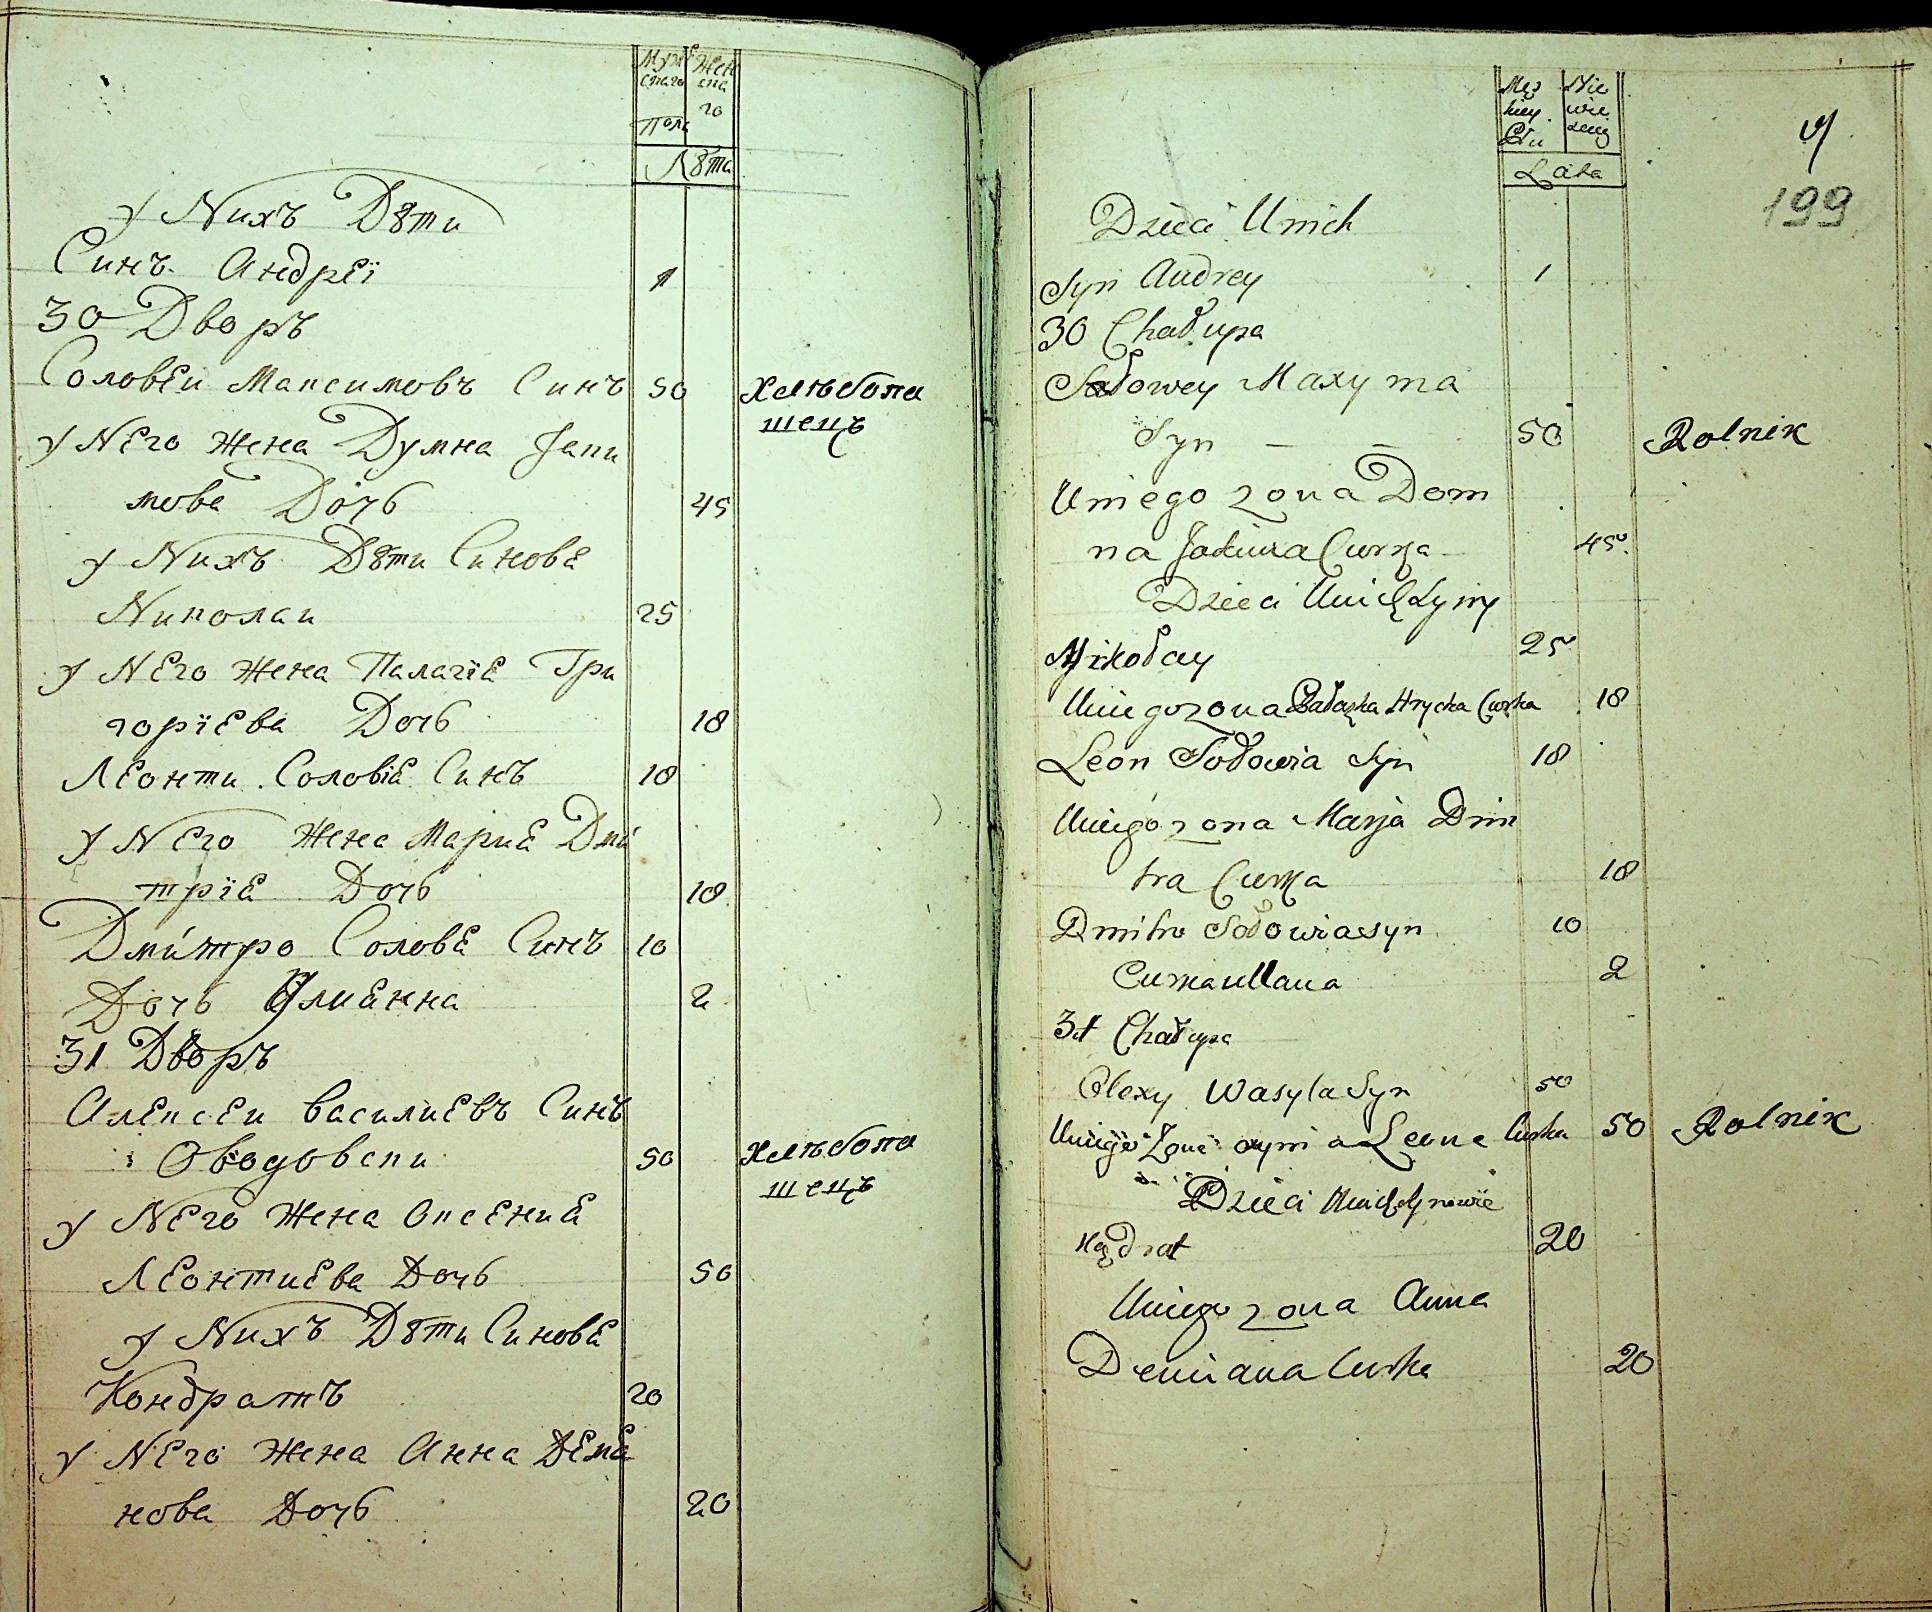 Муж Жен
скаго ска
го
Пола
Лѣта
у Nихъ Дѣти
Синъ Андреї 1
30 Дворъ
Соловеи Максимовъ Синъ 50 Хлѣбопа
шецъ
у Nего жена Думна Яки
мова Дочь 45
у Nихъ Дѣти Синове
Nиколаи 25
у Nего жена Палагїе Гри
горїева Дочь 18
Леонти Соловїе Синъ 18
у Nего Жена Марие Дми
трїе Дочь 18
Дмитро Солове Синъ 10
Дочь Улиенна 2
31 Дворъ
Алексеи василиевъ Синъ
Ободовски 50 Хлѣбопа
шецъ
у Nего Жена Оксение
Леонтиева Дочь 50
у Nихъ Дѣти Синове
Кондратъ 20
у Nего Жена Анна Деме
нова Дочь 20
Męs Nie
kiey wie
Płci
Lata
199
Dzieci U nich
Syn Andrey 1
30 Chałupa
Sołowey Maxyma
Syn — — 50 Rolnik
U niego zona Dom
na Jakima Curka 45
Dzieci U nich Syny
Mikołay 25
U niego zona Pałazka Hrycka Curka 18
Leon Sołowia Syn 18
U niego zona Marja Dmi
tra Curka 18
Dmitro Sołowia syn 10
Curka Ullana 2
31 Chałupa
Olexy Wasyla Syn 50
U niego Zona Leona Curka 50 Rolnik
Dzieci U nich Synowie
Kądrat 20
U niego zona Anna
Demiana Curka 20